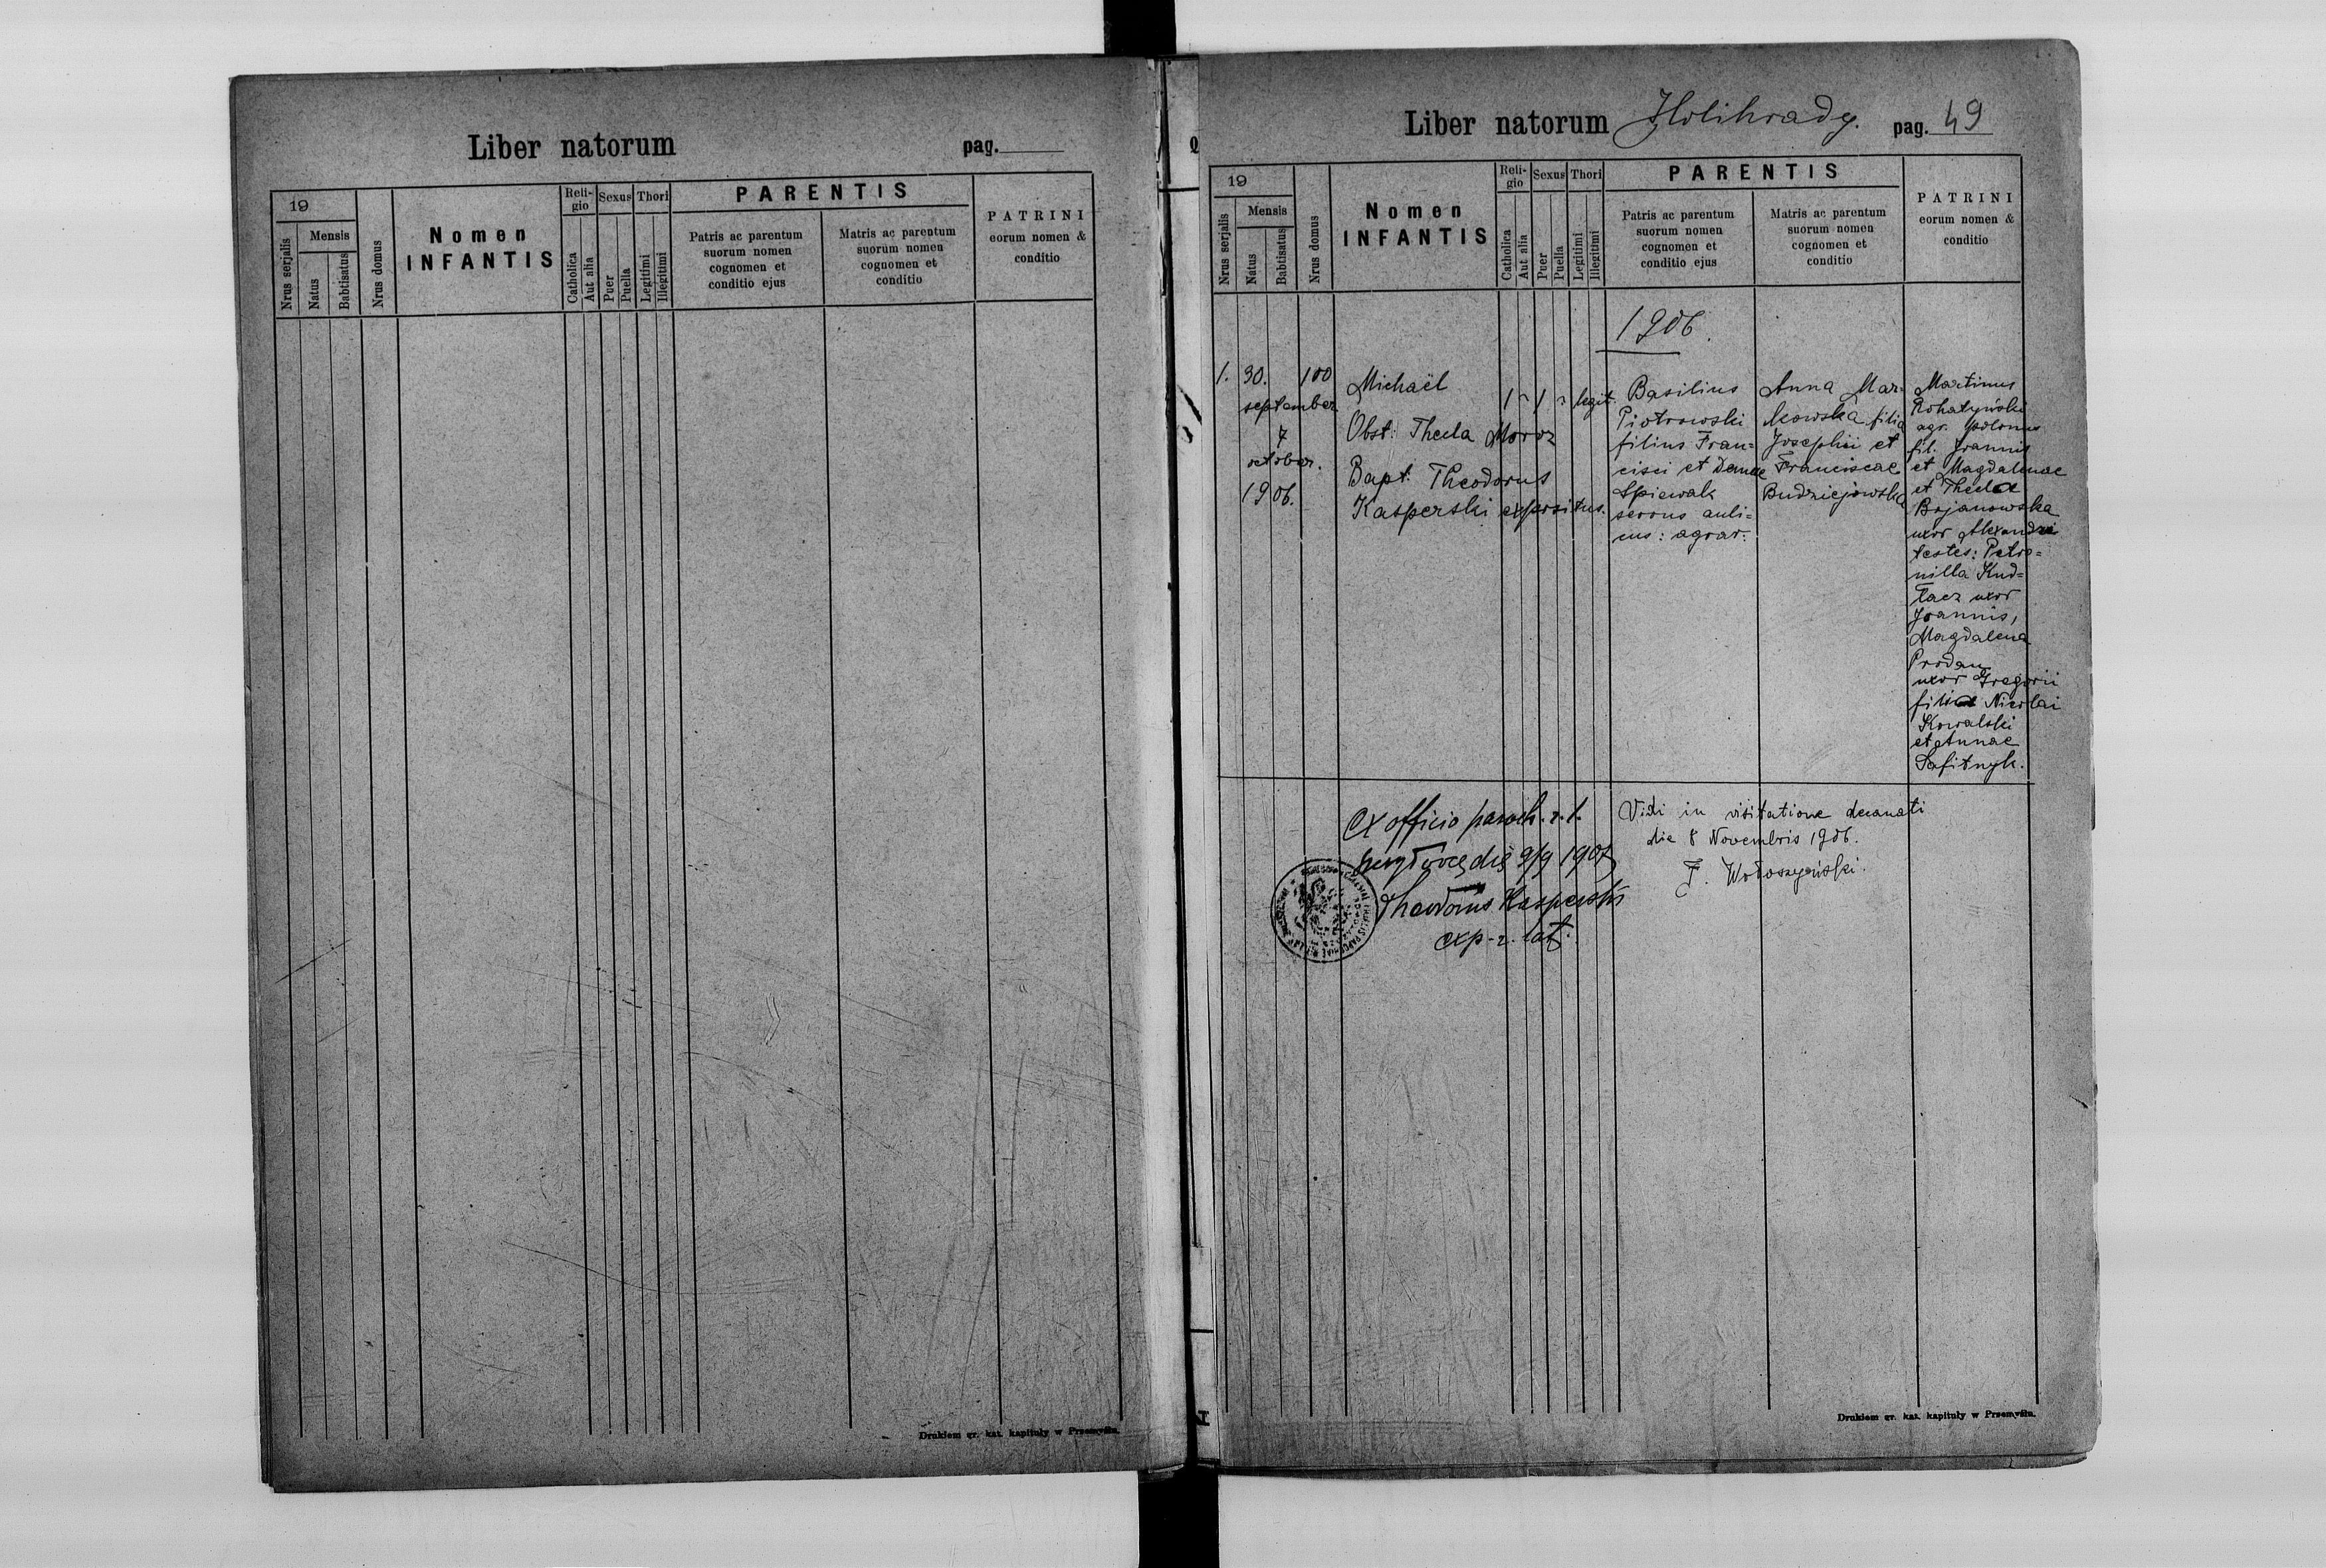 Liber natorum pag.
19
Mensis
Nrus serjalis
Natus
Babtisatus
Nrus domus
Nomen
INFANTIS
Reli-
gio
Catholica
Aut alia
Sexus
Puer
Puella
Thori
Legitimi
Illegitimi
PARENTIS
Patris ac parentum
suorum nomen
cognomen et
conditio ejus
Matris ac parentum
suorum nomen
cognomen et
conditio
PATRINI
eorum nomen &
conditio
Drukiem gr. kat. kapituły w Przemyślu.
Liber natorum Holihrady. pag. 49
19
Mensis
Nrus serjalis
Natus
Babtisatus
Nrus domus
Nomen
INFANTIS
Reli-
gio
Catholica
Aut alia
Sexus
Puer
Puella
Thori
Legitimi
Illegitimi
PARENTIS
Patris ac parentum
suorum nomen
cognomen et
conditio ejus
Matris ac parentum
suorum nomen
cognomen et
conditio
PATRINI
eorum nomen &
conditio
1906.
1. 30. 100
september
7
october.
1906.
Michaël
Obst: Thecla Moroz
Bapt: Theodorus
Kasperski expositus.
1 1 legit.
Basilius
Piotrowski
filius Fran-
cisci et Annae
Spiewak
servus auli-
cus: agrar:
Anna Mar-
kowska filia
Josephi et
Franciscae
Budziejowska
Martinus
Rohatyński
agr. polonus
fil. Joannis
et Magdalenae
et Thecla
Bojanowska
uxor Alexandri
testes: Petro-
nilla Kud-
łacz uxor
Joannis,
Magdalena
Prodan
uxor Gregorii
filia Nicolai
Kowalski
et Annae
Safitnyk.
Ex officio paroch. r. l.
die 9/9 1907
Theodorus Kasperski
exp. r. lat.
Vidi in visitatione decanali
die 8 Novembris 1906.
F. Wołoszyński.
Drukiem gr. kat. kapituły w Przemyślu.